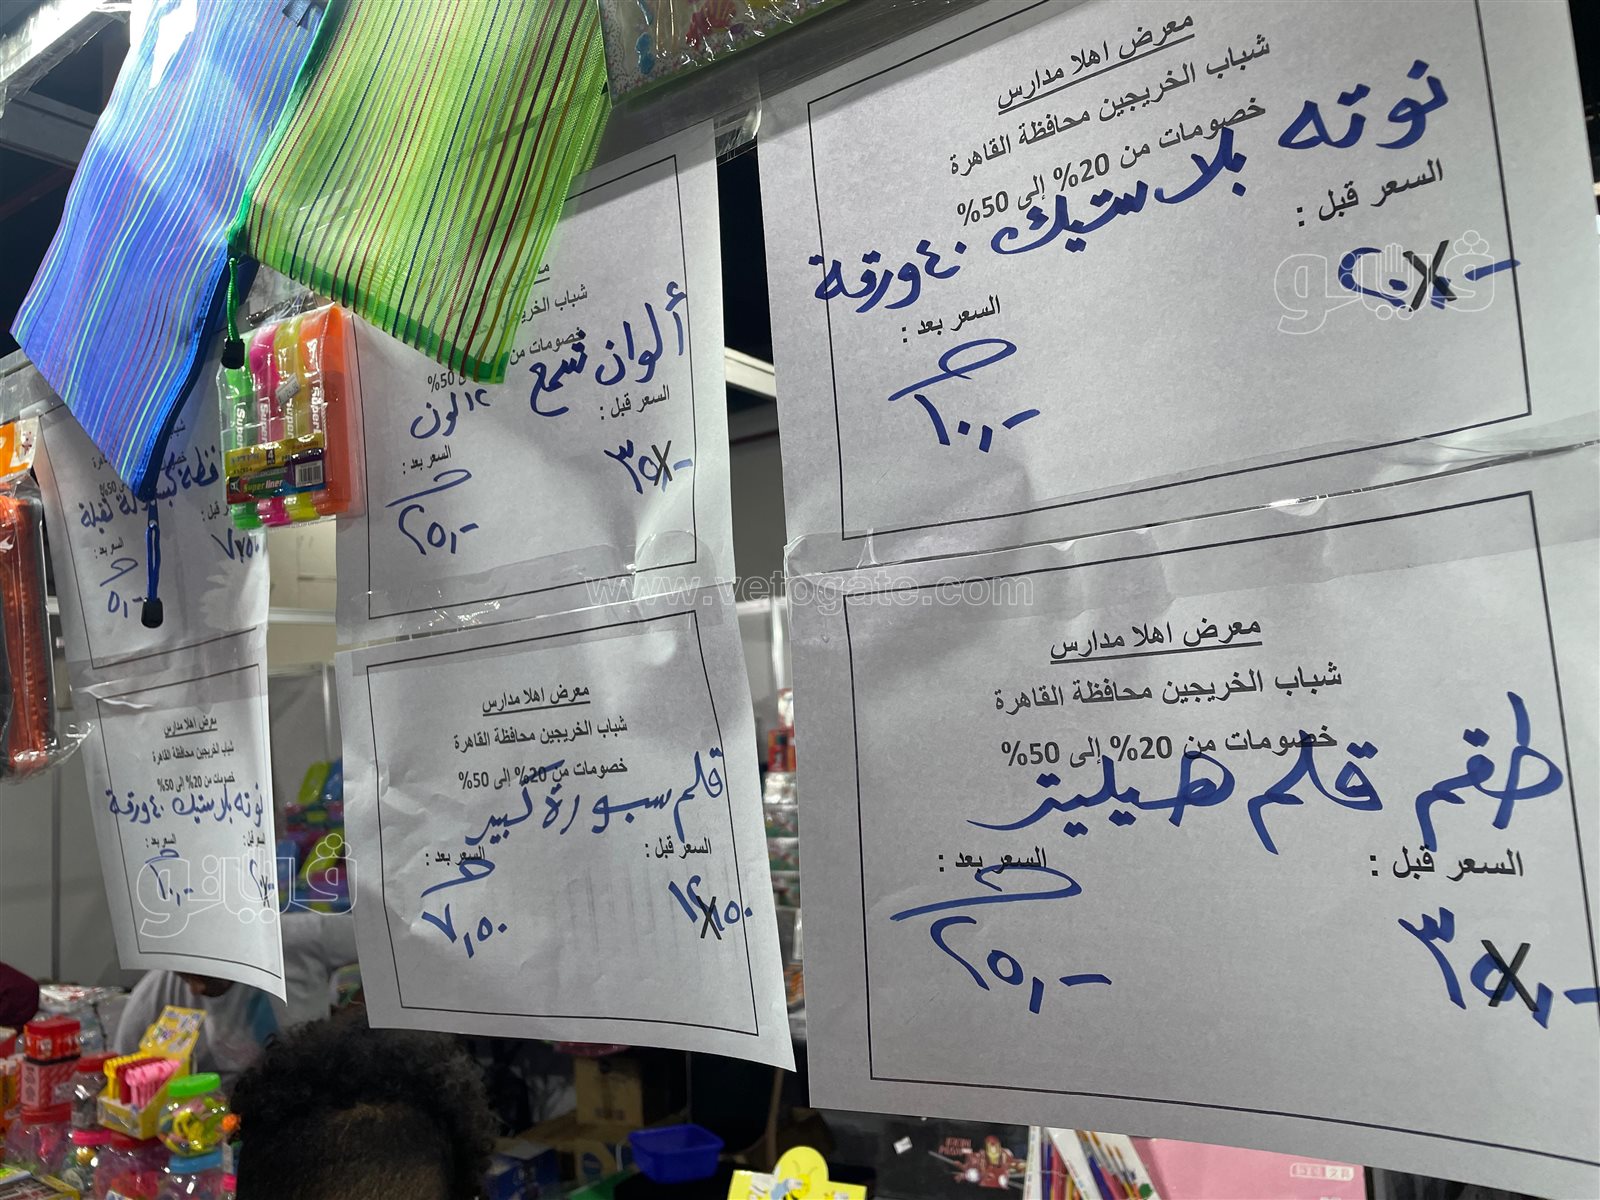 معرض اهلا مدارس
شباب الخريجين محافظة القاهرة
خصومات من 20% إلى 50%
نوته بلاستيك ٤٠ ورقة
السعر قبل :
٢٠,-
السعر بعد :
١٠,-
معرض اهلا مدارس
شباب الخريجين محافظة القاهرة
خصومات من 20% إلى 50%
طقم قلم هيليتر
السعر قبل :
٣٥,-
السعر بعد :
٢٥,-
شباب
خصومات من
50%
ألوان شمع
١٢ لون
السعر قبل :
٣٥,-
السعر بعد :
٢٥,-
معرض اهلا مدارس
شباب الخريجين محافظة القاهرة
خصومات من 20% إلى 50%
قلم سبورة كبير
السعر قبل :
١٢,٥٠
السعر بعد :
٧,٥٠
50%
قبل :
٧,٥٠
السعر بعد :
٥,-
معرض اهلا مدارس
شباب الخريجين محافظة القاهرة
خصومات من 20% إلى 50%
نوته بلاستيك ٤٠ ورقة
السعر قبل :
السعر بعد :
١٠,-
Super
Super
Super
4
Superliner
www.vetogate.com
ڤيتو
ڤيتو